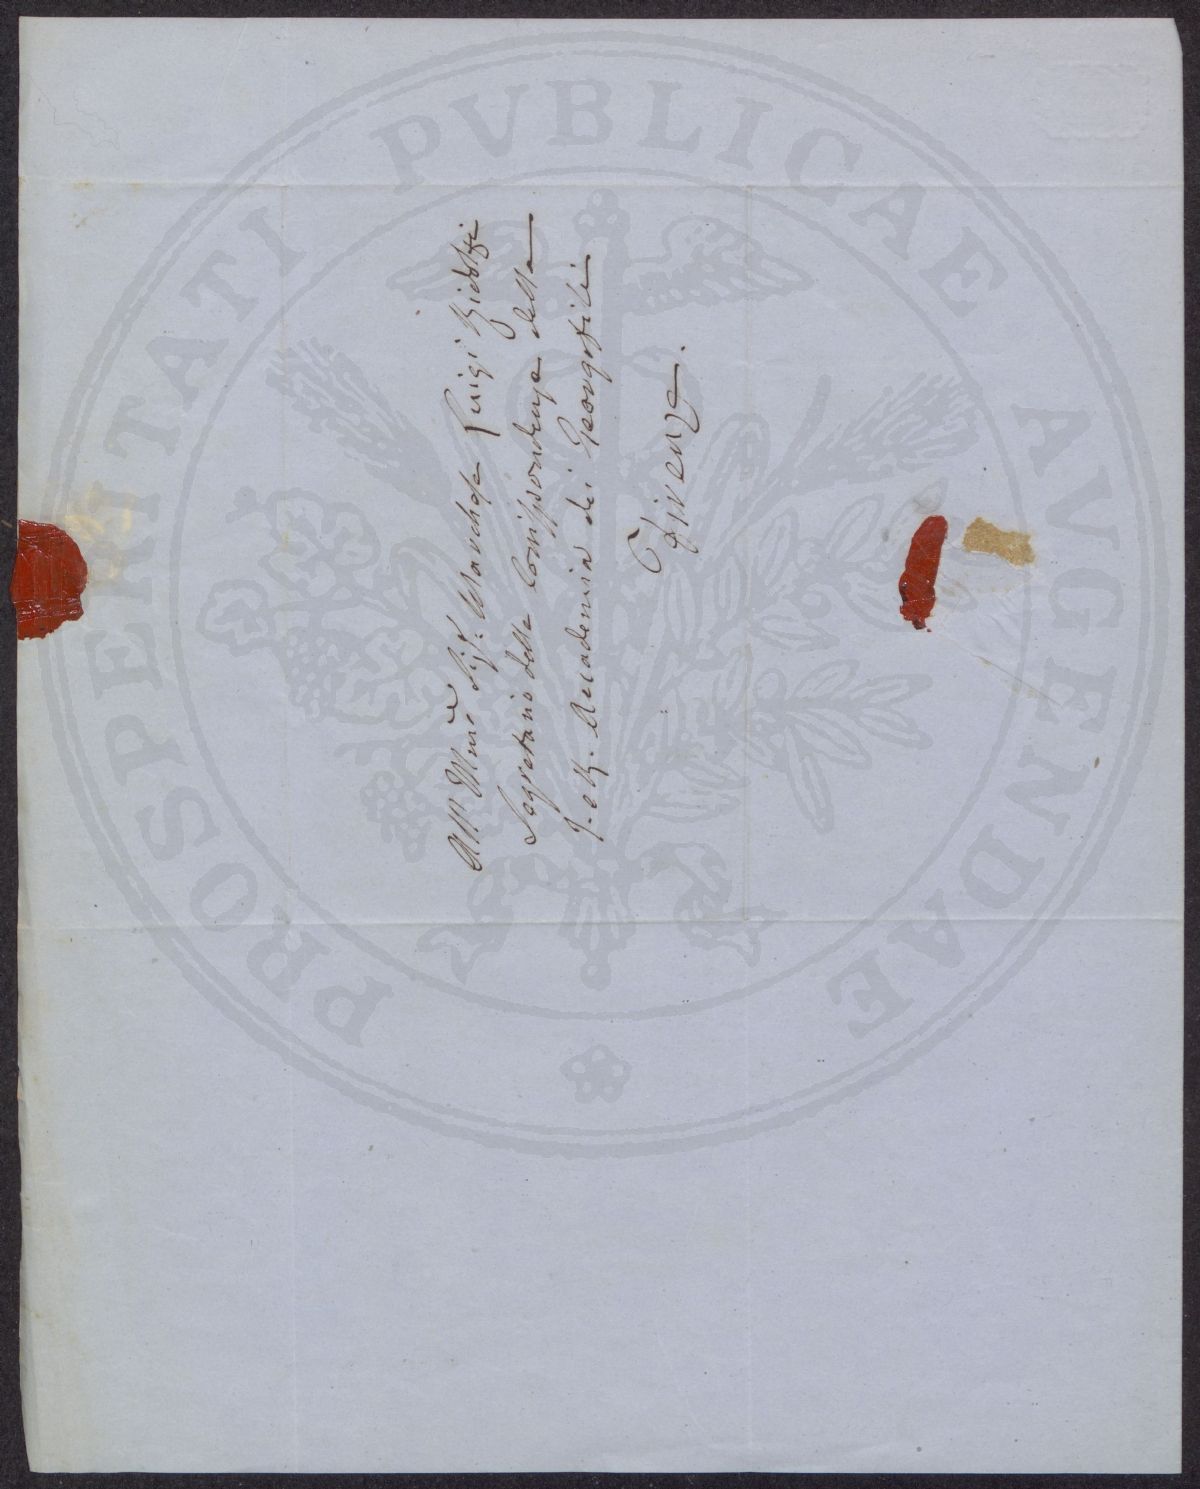 All' Illmo Sigr. Marchese Luigi Ridolfi
Segretario delle Corrispondenze della
I. e R. Accademia dei Georgofili
Firenze.
PROSPERITATI PVBLICAE AVGENDAE